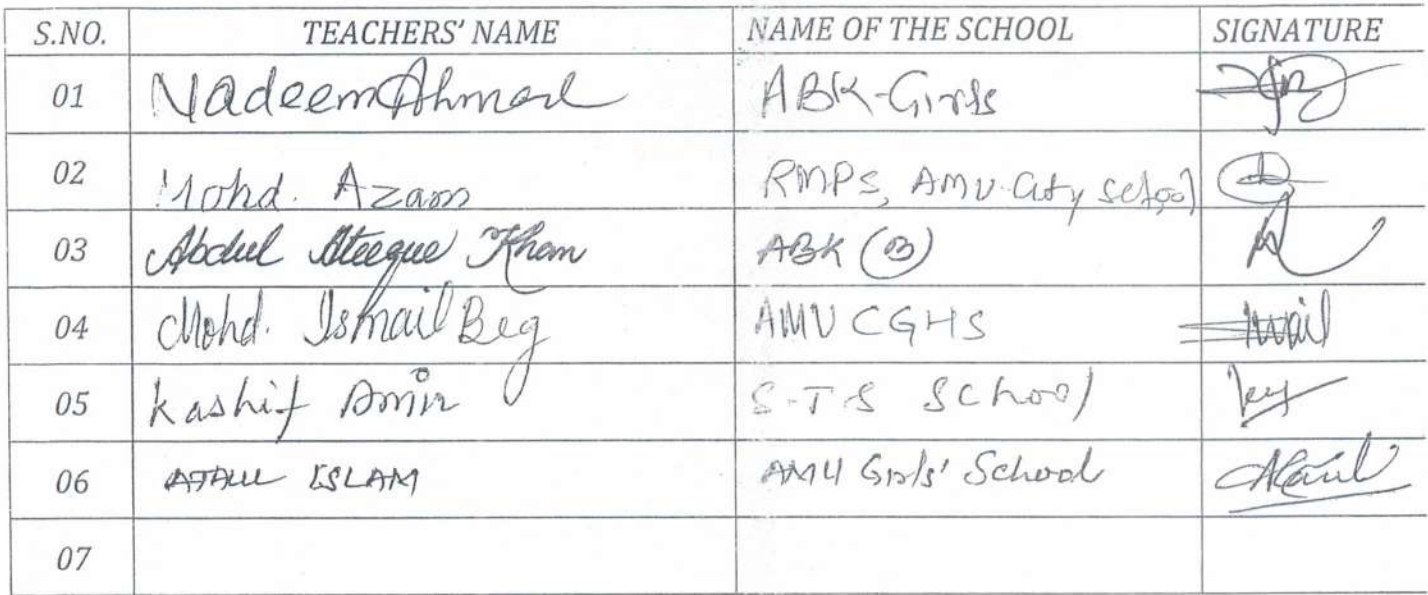 S.NO. TEACHERS' NAME NAME OF THE SCHOOL SIGNATURE
01 Nadeem Ahmad ABK-Girls
02 Mohd. Azam RMPS, AMU City School
03 Abdul Ateeque Khan ABK (B)
04 Mohd. Ismail Beg AMU CGHS
05 Kashif Amir S.T.S School
06 ATAUL ISLAM AMU Girls' School
07